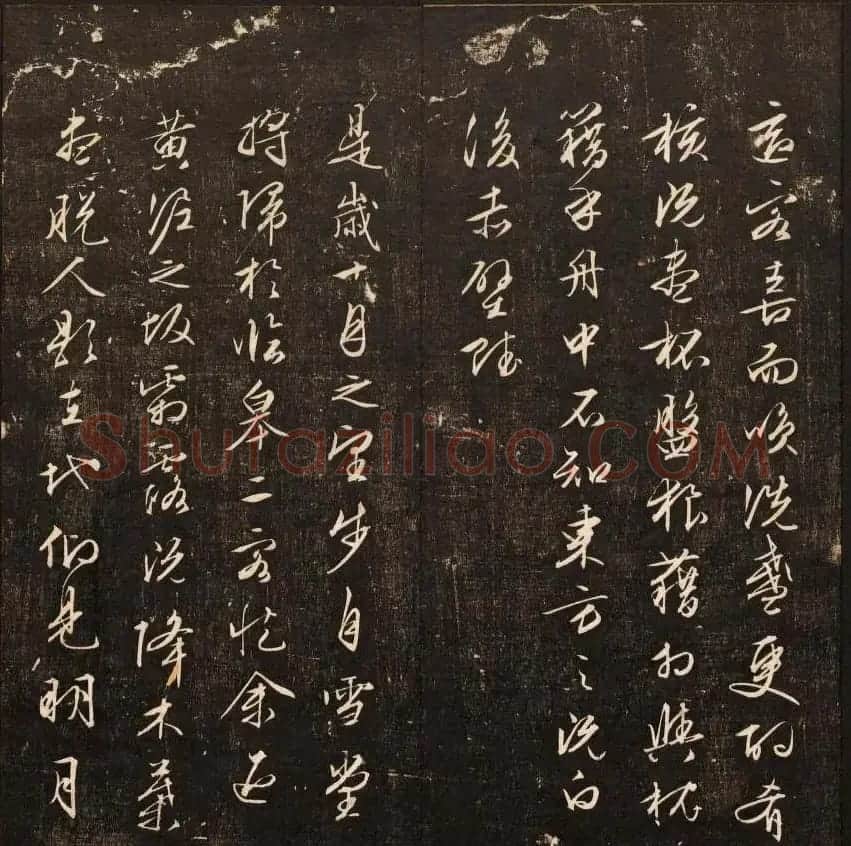 適客喜而笑洗盞更酌肴
核既盡杯盤狼藉相與枕
藉乎舟中不知東方之既白
後赤壁賦
是歲十月之望步自雪堂
將歸於臨皋二客從余過
黃泥之坂霜露既降木葉
盡脫人影在地仰見明月
Shufaziliao.COM